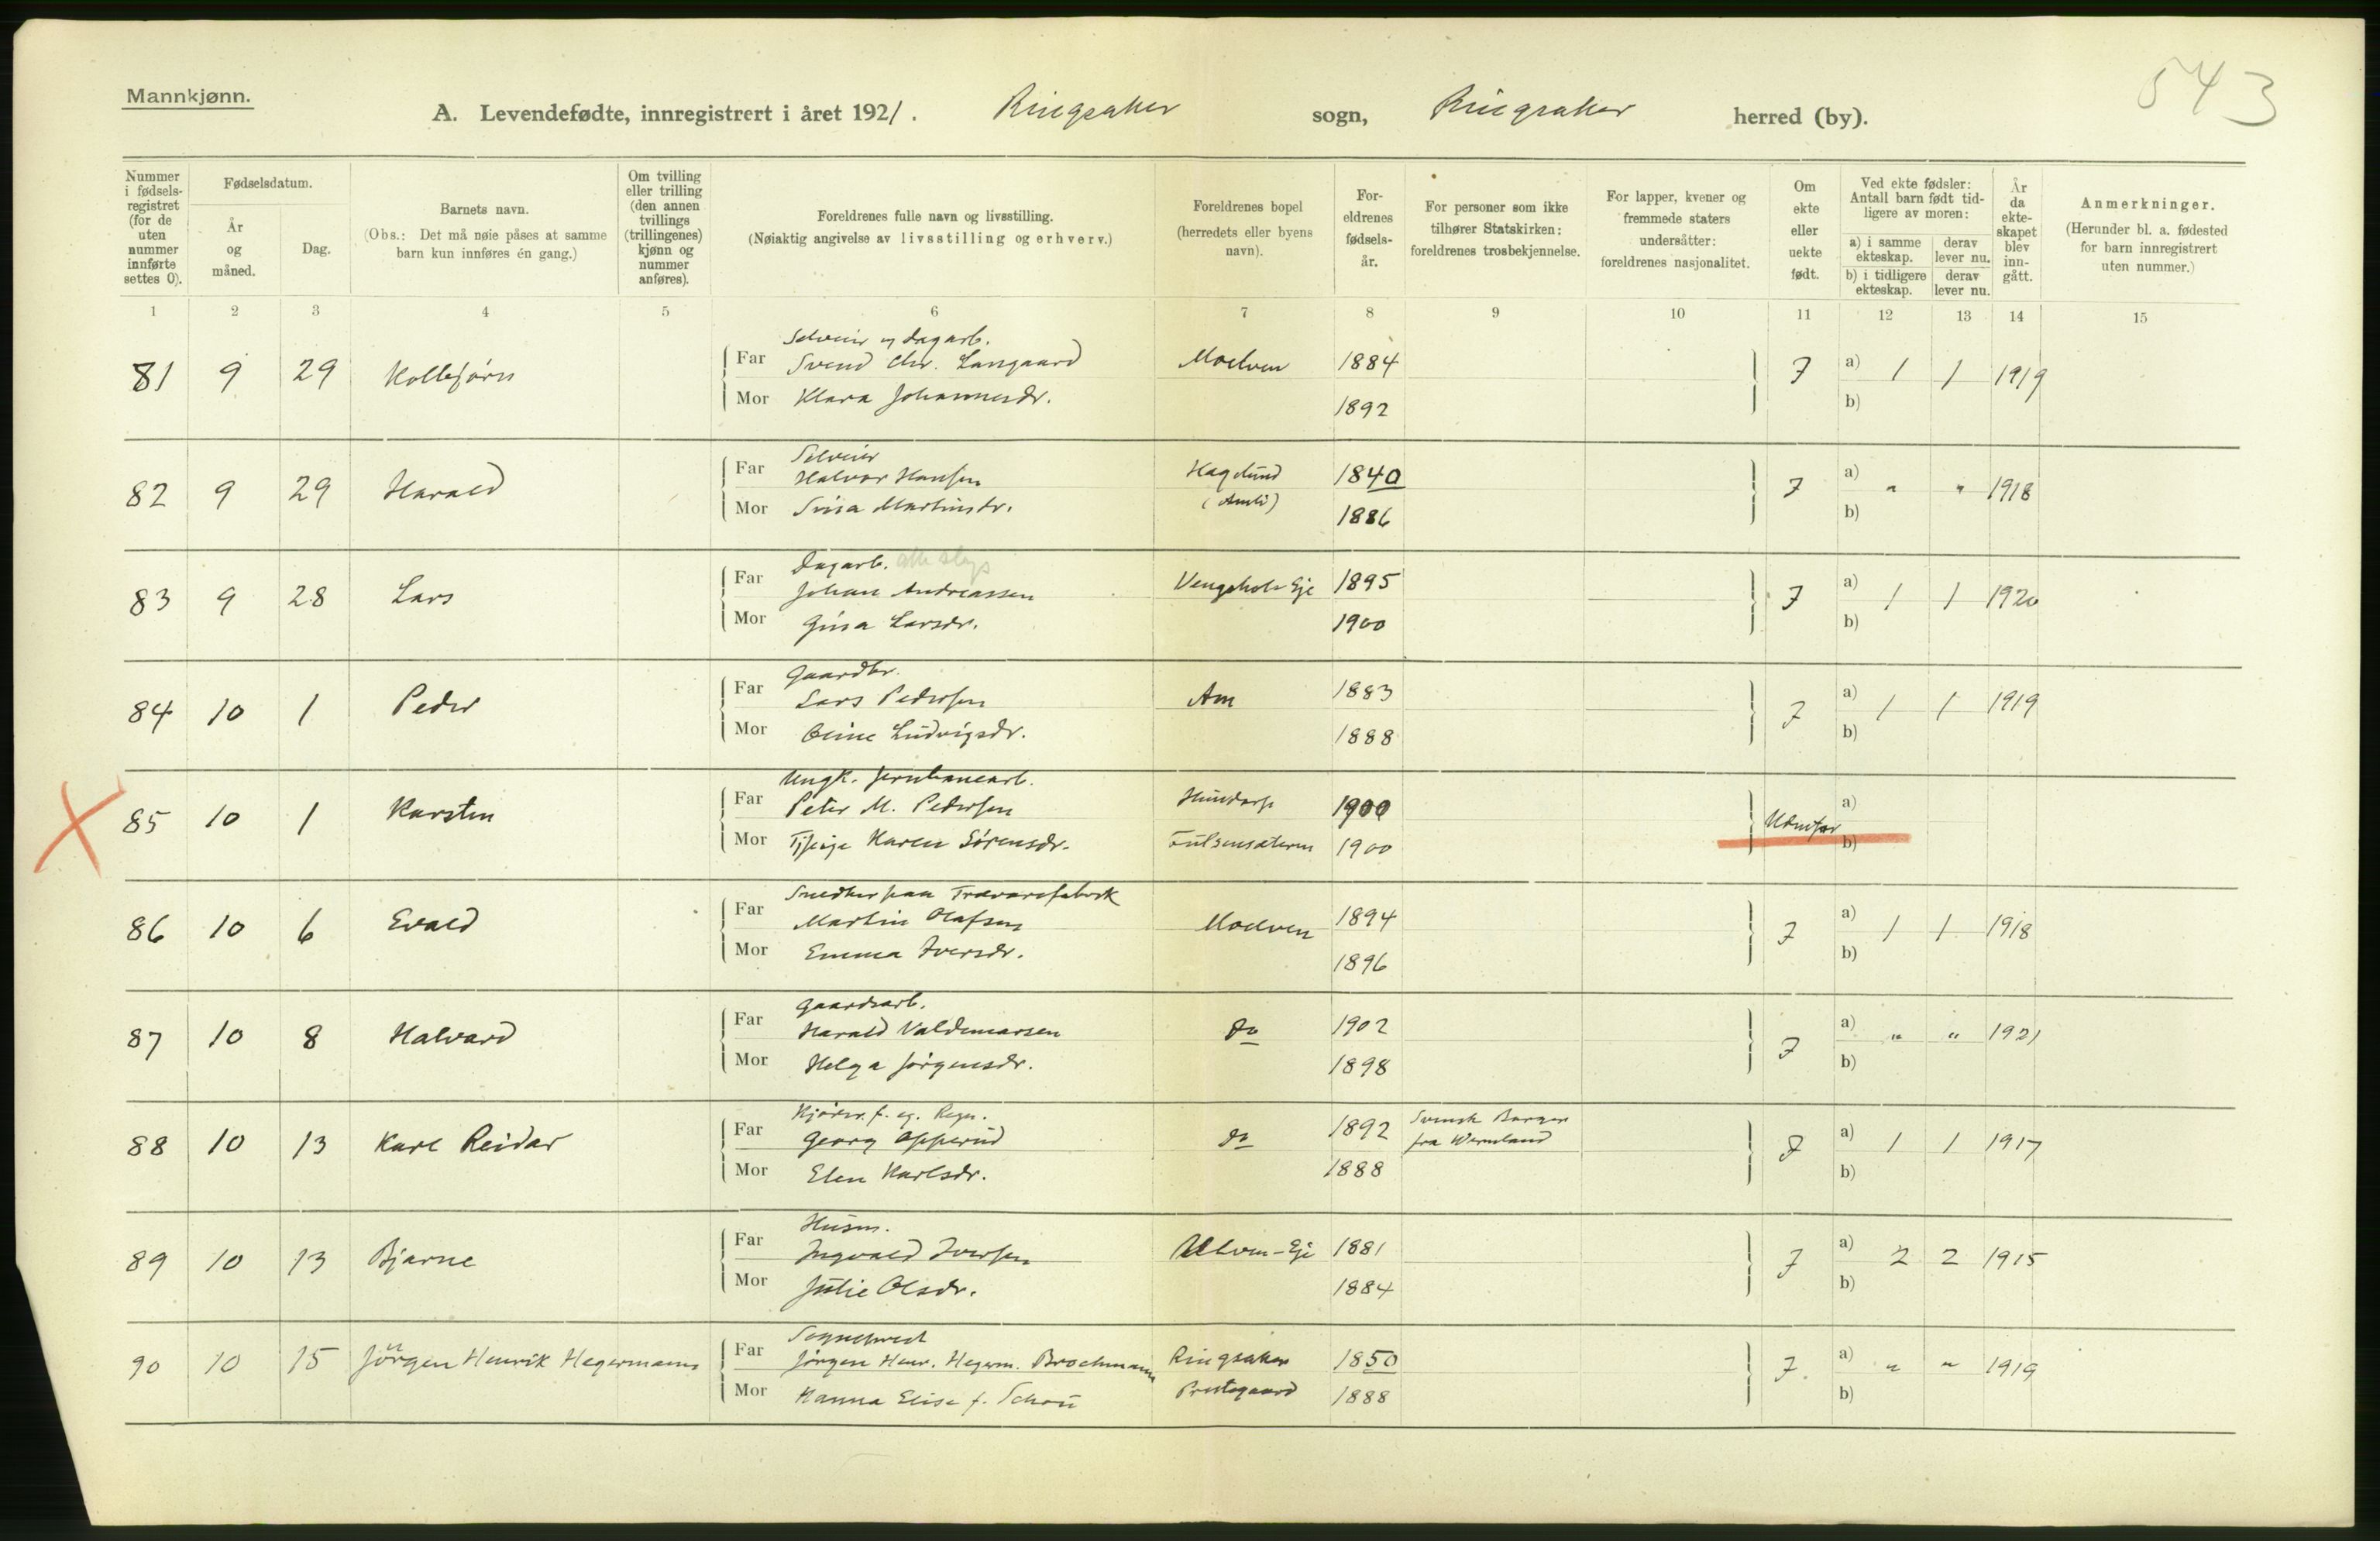 Mannkjønn.
543
A. Levendefødte, innregistrert i året 1921. Ringsaker sogn, Ringsaker herred (by).
Nummer i fødselsregistret (for de uten nummer innførte settes 0).
Fødselsdatum.
År og måned.
Dag.
Barnets navn.
(Obs.: Det må nøie påses at samme barn kun innføres én gang.)
Om tvilling eller trilling (den annen tvillings (trillingenes) kjønn og nummer anføres).
Foreldrenes fulle navn og livsstilling.
(Nøiaktig angivelse av livsstilling og erhverv.)
Foreldrenes bopel (herredets eller byens navn).
Foreldrenes fødselsår.
For personer som ikke tilhører Statskirken: foreldrenes trosbekjennelse.
For lapper, kvener og fremmede staters undersåtter: foreldrenes nasjonalitet.
Om ekte eller uekte født.
Ved ekte fødsler: Antall barn født tidligere av moren:
a) i samme ekteskap. derav lever nu.
b) i tidligere ekteskap. derav lever nu.
År da ekteskapet blev inngått.
Anmerkninger.
(Herunder bl. a. fødested for barn innregistrert uten nummer.)
1 2 3 4 5 6 7 8 9 10 11 12 13 14 15
Selveier og dagarb.
81 9 29 Kolbjørn Far Svend Chr. Langaard Moelven 1884 a) 1 1 1919
Mor Klara Johannesdr. 1892 b)
Selveier
82 9 29 Harald Far Halvor Hansen Haglund 1840 a) " " 1918
Mor Sina Martinsdr. 1886 b)
Dagarb.
83 9 28 Lars Far Johan Andreassen Eje 1895 a) 1 1 1920
Mor Gina Larsdr. 1900 b)
Gaardbr.
84 10 1 Peder Far Lars Pedersen Am 1883 a) 1 1 1919
Mor Oline Ludvigsdr. 1888 b)
Ungk. Jernbanearb.
85 10 1 Karsten Far Peter M. Pedersen 1900 a)
Mor Karen Sørensdr. 1900 b)
Snedker paa Trævarefabrik
86 10 6 Evald Far Martin Olafsen Moelven 1894 a) 1 1 1918
Mor Emma Iversdr. 1896 b)
Gaardsarb.
87 10 8 Halvard Far Harald Valdemarsen do 1902 a) " " 1921
Mor Helga Jörgensdr. 1898 b)
88 10 13 Karl Reidar Far Georg Opperud do 1892 Svensk Borger fra Wermland a) 1 1 1917
Mor Elen Karlsdr. 1888 b)
Husm.
89 10 13 Bjarne Far Ingvald Iversen Ulven-Eje 1881 a) 2 2 1915
Mor Julie Olsdr. 1884 b)
Sogneprest
90 10 15 Jörgen Henrik Hegermann Far Jörgen Henr. Hegerm. Brochmann Ringsaker 1850 a) " " 1919
Mor Hanna Elise f. Schou Prestegaard 1888 b)